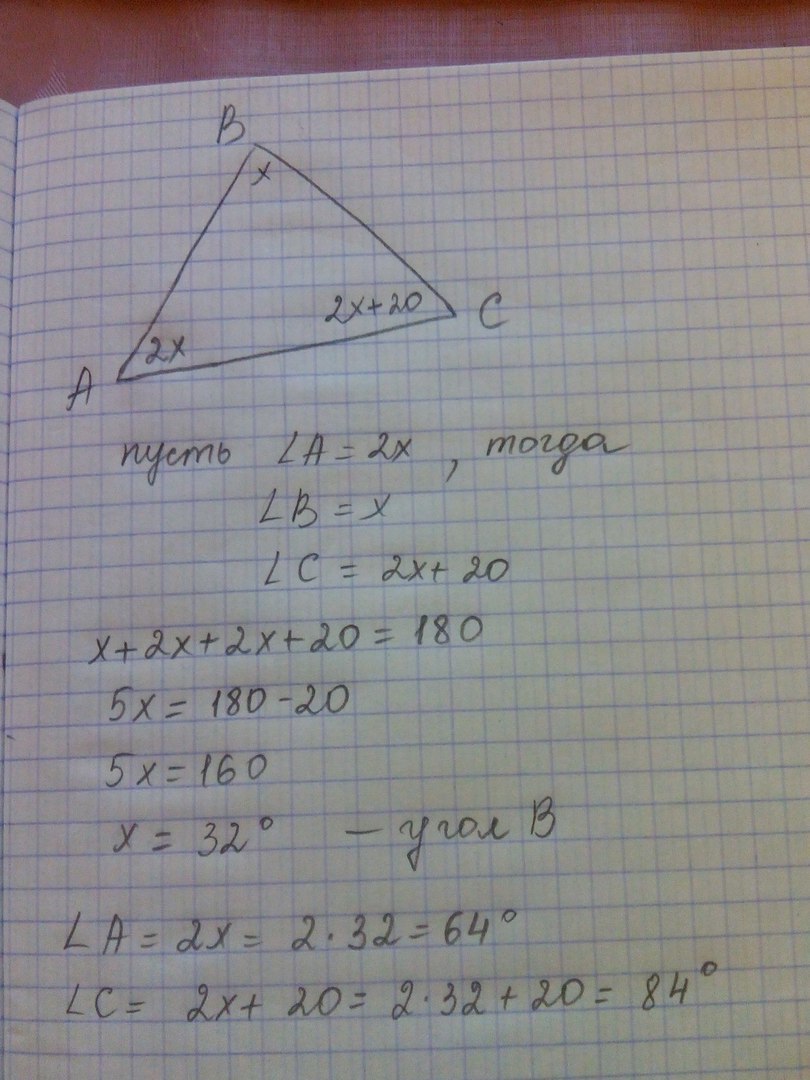 B
x
2x+20 C
2x
A
пусть ∠A = 2x , тогда
∠B = x
∠C = 2x+ 20
x+2x+2x+20=180
5x= 180-20
5x=160
x = 32° — угол B
∠A = 2x = 2·32=64°
∠C= 2x+ 20= 2·32+20= 84°